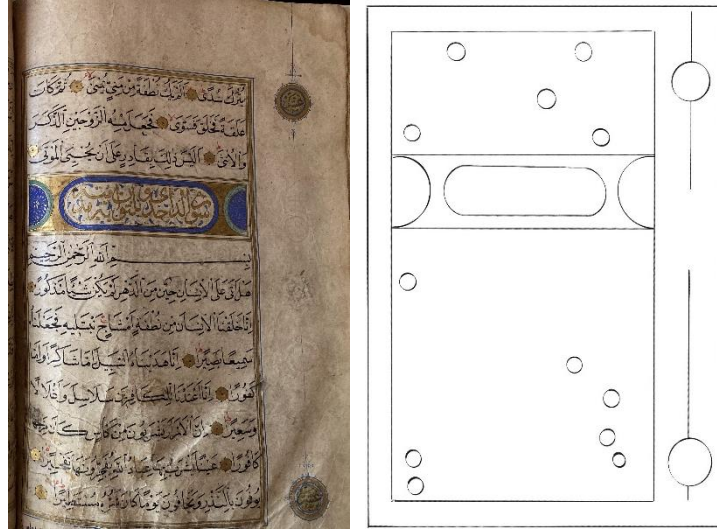 يُتْرَكَ سُدًى أَلَمْ يَكُ نُطْفَةً مِنْ مَنِيٍّ يُمْنَى ثُمَّ كَانَ
عَلَقَةً فَخَلَقَ فَسَوَّى فَجَعَلَ مِنْهُ الزَّوْجَيْنِ الذَّكَرَ
وَالْأُنْثَى أَلَيْسَ ذَلِكَ بِقَادِرٍ عَلَى أَنْ يُحْيِيَ الْمَوْتَى
سورة
بِسْمِ اللهِ الرَّحْمَنِ الرَّحِيمِ
هَلْ أَتَى عَلَى الْإِنْسَانِ حِينٌ مِنَ الدَّهْرِ لَمْ يَكُنْ شَيْئًا مَذْكُورًا
إِنَّا خَلَقْنَا الْإِنْسَانَ مِنْ نُطْفَةٍ أَمْشَاجٍ نَبْتَلِيهِ فَجَعَلْنَاهُ
سَمِيعًا بَصِيرًا إِنَّا هَدَيْنَاهُ السَّبِيلَ إِمَّا شَاكِرًا وَإِمَّا
كَفُورًا إِنَّا أَعْتَدْنَا لِلْكَافِرِينَ سَلَاسِلَ وَأَغْلَالًا
وَسَعِيرًا إِنَّ الْأَبْرَارَ يَشْرَبُونَ مِنْ كَأْسٍ كَانَ مِزَاجُهَا
كَافُورًا عَيْنًا يَشْرَبُ بِهَا عِبَادُ اللهِ يُفَجِّرُونَهَا تَفْجِيرًا
يُوفُونَ بِالنَّذْرِ وَيَخَافُونَ يَوْمًا كَانَ شَرُّهُ مُسْتَطِيرًا